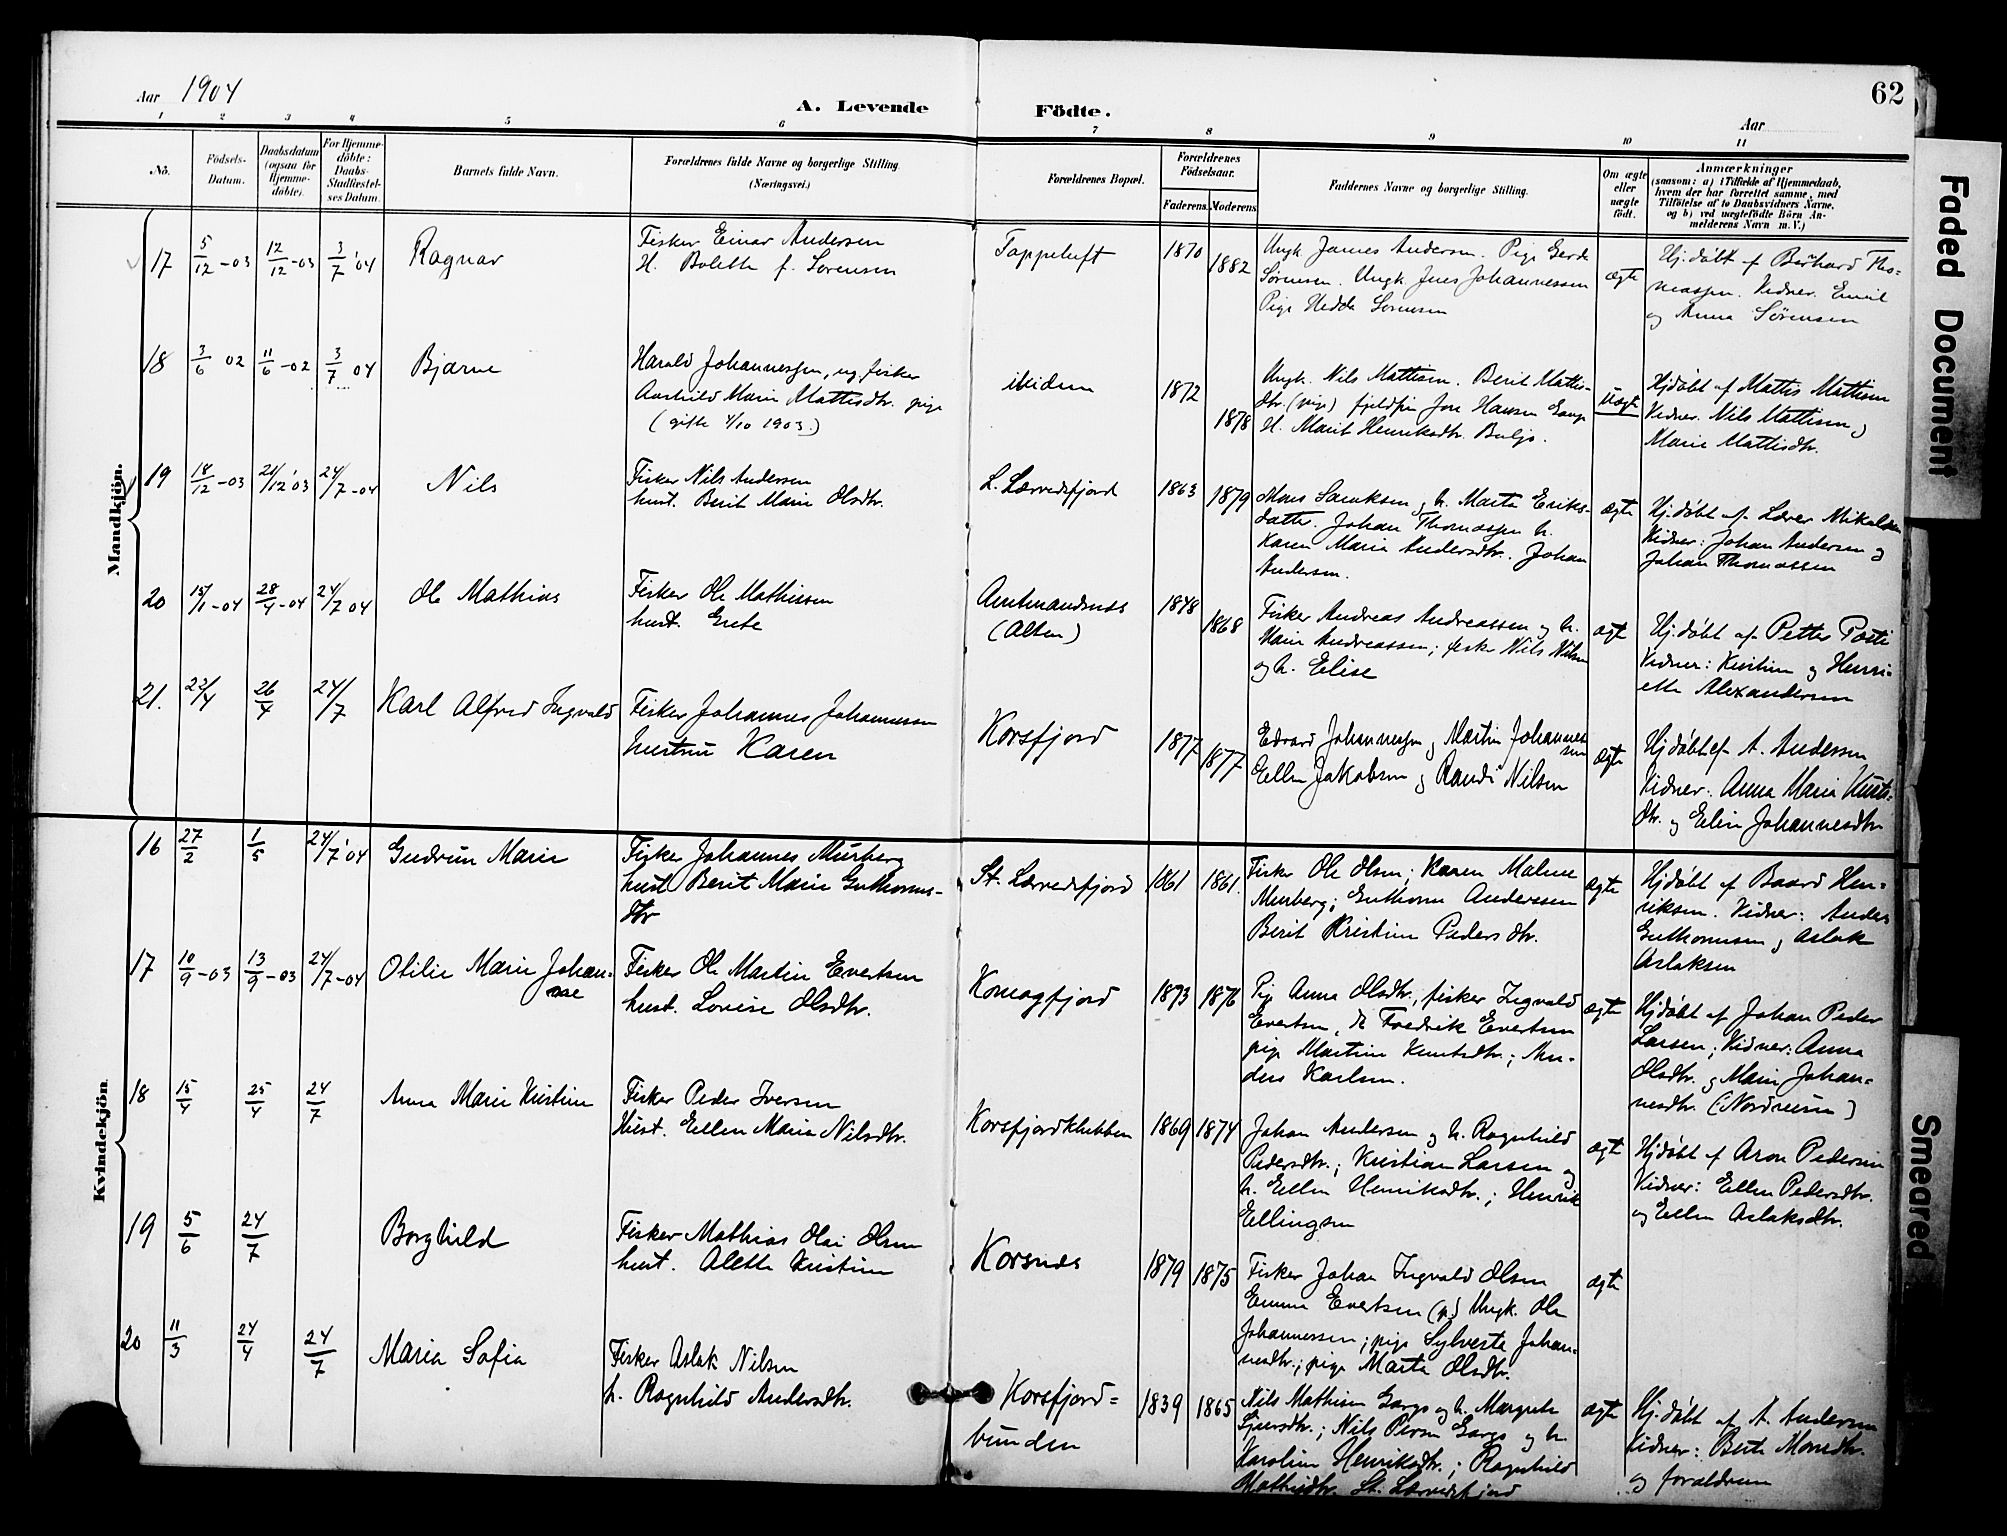 Aar 1904
A. Levende Födte.
Aar
62
1 2 3 4 5 6 7 8 9 10 11
No.
Födsels-Datum.
Daabsdatum (ogsaa for Hjemme-döbte).
For Hjemme-döbte: Daabs-Stadfæstel-ses Datum.
Barnets fulde Navn.
Forældrenes fulde Navne og borgerlige Stilling.
(Næringsvei.)
Forældrenes Bopæl.
Forældrenes Födselsaar.
Faderens. Moderens.
Faddernes Navne og borgerlige Stilling.
Om ægte eller uægte födt.
Anmærkninger
(saasom: a) i Tilfælde af Hjemmedaab,
hvem der har forrettet samme, med
Tilföielse af to Daabsvidners Navne.
og b) ved uægtefödte Börn An-
melderens Navn m. V.)
Mandkjön.
17 5/12-03 12/12-03 3/7 '04 Ragnar
Fisker Einar Andersen
H. Bolette f. Sørensen
Tappeluft 1870 1882
Ungk James Andersen. Pige Gerda
Sørensen. Ungk Jens Johannessen
Pige Hedda Sørensen
ægte
Hj.døbt af Bernhard Tho-
massen. Vidner. Emil
og Anna Sørensen
18 3/6 02 11/6-02 3/7 04 Bjarne
Harald Johannessen, ug. fisker
Aashild Marie Mattisdtr. pige
(gifte 4/10 1903.)
ibidem 1872 1878
Ungk. Nils Mattisen. Berit Mattis-
dtr. (pige) fjeldfin Jon Hansen Gaup
H. Marit Henriksdtr. Buljo.
uægte
Hjdøbt af Mattis Mattisen
Vidner. Nils Mattisen og
Marie Mattisdtr.
19 18/12-03 21/12'03 24/7-04 Nils
Fisker Nils Andersen
hust. Berit Marie Olsdtr.
L. Lærredsfjord 1863 1879
Mons Samuelsen og h. Marta Eriks-
datter. Johan Thomassen h.
Karen Maria Andersdtr. Johan
Andersen.
ægte
Hj.døbt af Lærer Mikalsen
Vidner: Johan Andersen og
Johan Thomassen
20 15/1-04 28/4-04 24/7 04 Ole Mathias
Fisker Ole Mathissen
hust. Grete
Amtmandsnes
(Alten)
1848 1868
Fisker Andreas Andreassen og h.
Marie Andreassen; fisker Nils Nilsen
og h. Elise
ægte
Hj.døbt af Petter Posti
Vidner: Kristine og Henri-
ette Alexandersen
21. 22/4 26/4 24/7 Karl Alfred Ingvald
Fisker Johannes Johannessen
hustru Karen
Korsfjord 1877 1877
Edvard Johannessen og Martin Johannes
sen
Ellen Jakobsen og Randi Nilsen
ægte
Hjdøbt af A. Andersen
Vidner: Anna Maria Knuts-
dtr. og Elen Johannesdtr.
Kvindekjön.
16 27/2 1/5 24/7'04 Gudrun Marie
Fisker Johannes Murberg
hust. Berit Marie Guttorms-
dtr
St. Lærredsfjord 1861 1861.
Fisker Ole Olsen; Karen Malene
Murberg; Guttorm Anderssen
Berit Kristine Pedersdtr.
ægte
Hjdøbt af Baard Hen-
riksen. Vidner: Anders
Guttormsen og Aslak
Aslaksen
17 10/9-03 13/9-03 24/7-04 Otilie Marie Johan-
ne
Fisker Ole Martin Evertsen
hust. Lovise Olsdtr.
Komagfjord 1873 1876
Pige Anna Olsdtr., fisker Ingvald
Evertsen, do Fredrik Evertsen
pige Martine Knutsdtr.; An-
ders Karlsen.
ægte
Hjdøbt af Johan Peder
Larsen; Vidner: Anna
Olsdtr. og Marie Johan-
nesdtr. (Nordreisen)
18 15/4 25/4 24/7 Anna Marie Kristine
Fisker Peder Iversen
Hust. Ellen Maria Nilsdtr.
Korsfjordklubben 1869 1874
Johan Andersen og h. Ragnhild
Pedersdtr.; Kristian Larsen og
h. Ellen Henriksdtr.; Henrik
Ellingsen
ægte
Hjdøbt af Aron Pedersen
Vidner: Ellen Pedersdtr.
og Ellen Aslaksdtr.
19 5/6 24/7 Borghild
Fisker Mathias Olai Olsen
hust. Alette Kristine
Korsnes 1879 1875
Fisker Johan Ingvald Olsen
Emma Evertsen (p.) Ungk. Ole
Johannessen; pige Sylveste Johan-
nesdtr.; pige Marta Olsdtr.
ægte
20 11/3 24/4 24/7 Maria Sofia
Fisker Aslak Nilsen
h. Ragnhild Andersdtr.
Korsfjord-
bunden
1839 1865
Nils Mathisen Gargo og h. Margrete
Nils Persen Gargo og h.
Karoline Henriksdtr.; Ragnhild
Mathisdtr. St. Lærredsfjord
ægte
Hj.døbt af A. Andersen
Vidner: Berte Monsdtr.
og forældrene
Faded Document
Smeared